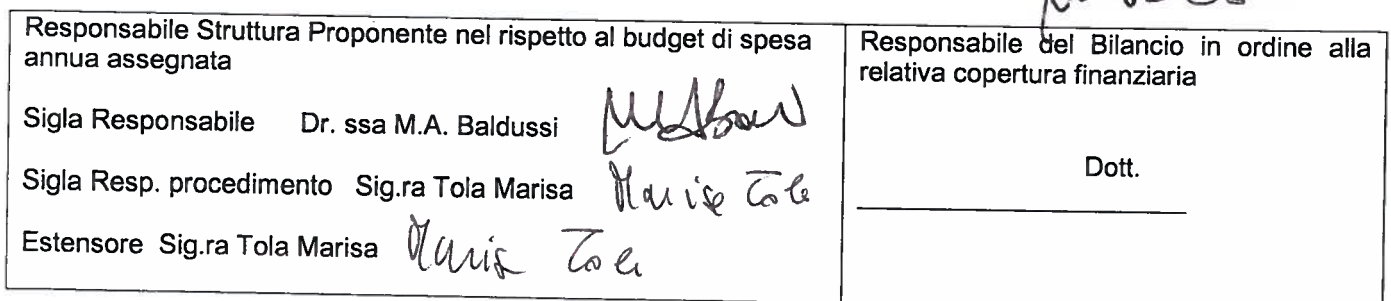 Responsabile Struttura Proponente nel rispetto al budget di spesa
annua assegnata
Sigla Responsabile Dr. ssa M.A. Baldussi
Sigla Resp. procedimento Sig.ra Tola Marisa Marisa Tola
Estensore Sig.ra Tola Marisa Marisa Tola
Responsabile del Bilancio in ordine alla
relativa copertura finanziaria
Dott.